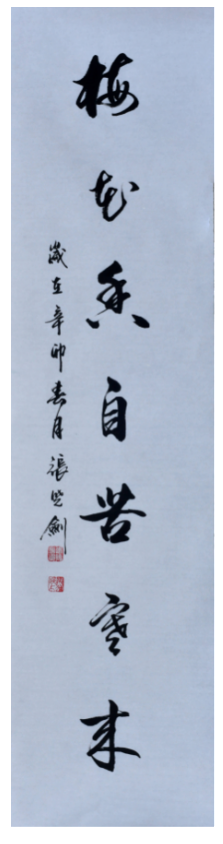 梅花香自苦寒来
歲在辛卯春月張
劍